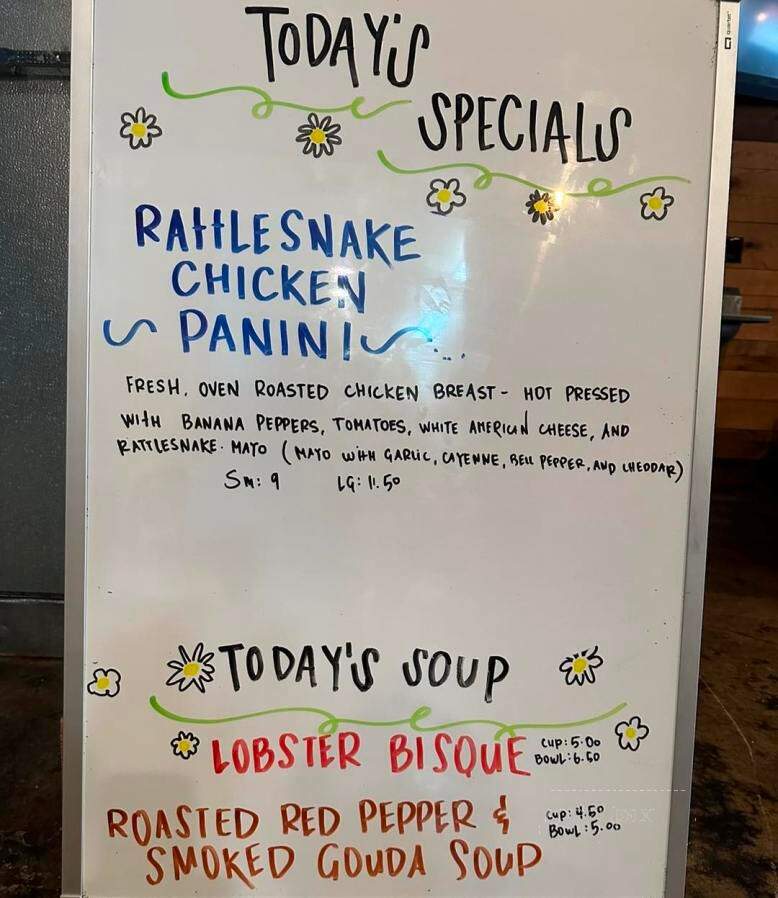 TODAY'S
SPECIALS
RATTLESNAKE
CHICKEN
PANINI
FRESH, OVEN ROASTED CHICKEN BREAST - HOT PRESSED
WITH BANANA PEPPERS, TOMATOES, WHITE AMERICAN CHEESE, AND
RATTLESNAKE MAYO (MAYO WITH GARLIC, CAYENNE, BELL PEPPER, AND CHEDDAR)
SM: 9 LG: 11.50
TODAY'S SOUP
LOBSTER BISQUE
CUP: 5.00
BOWL: 6.50
ROASTED RED PEPPER &
SMOKED GOUDA SOUP
CUP: 4.50
BOWL: 5.00